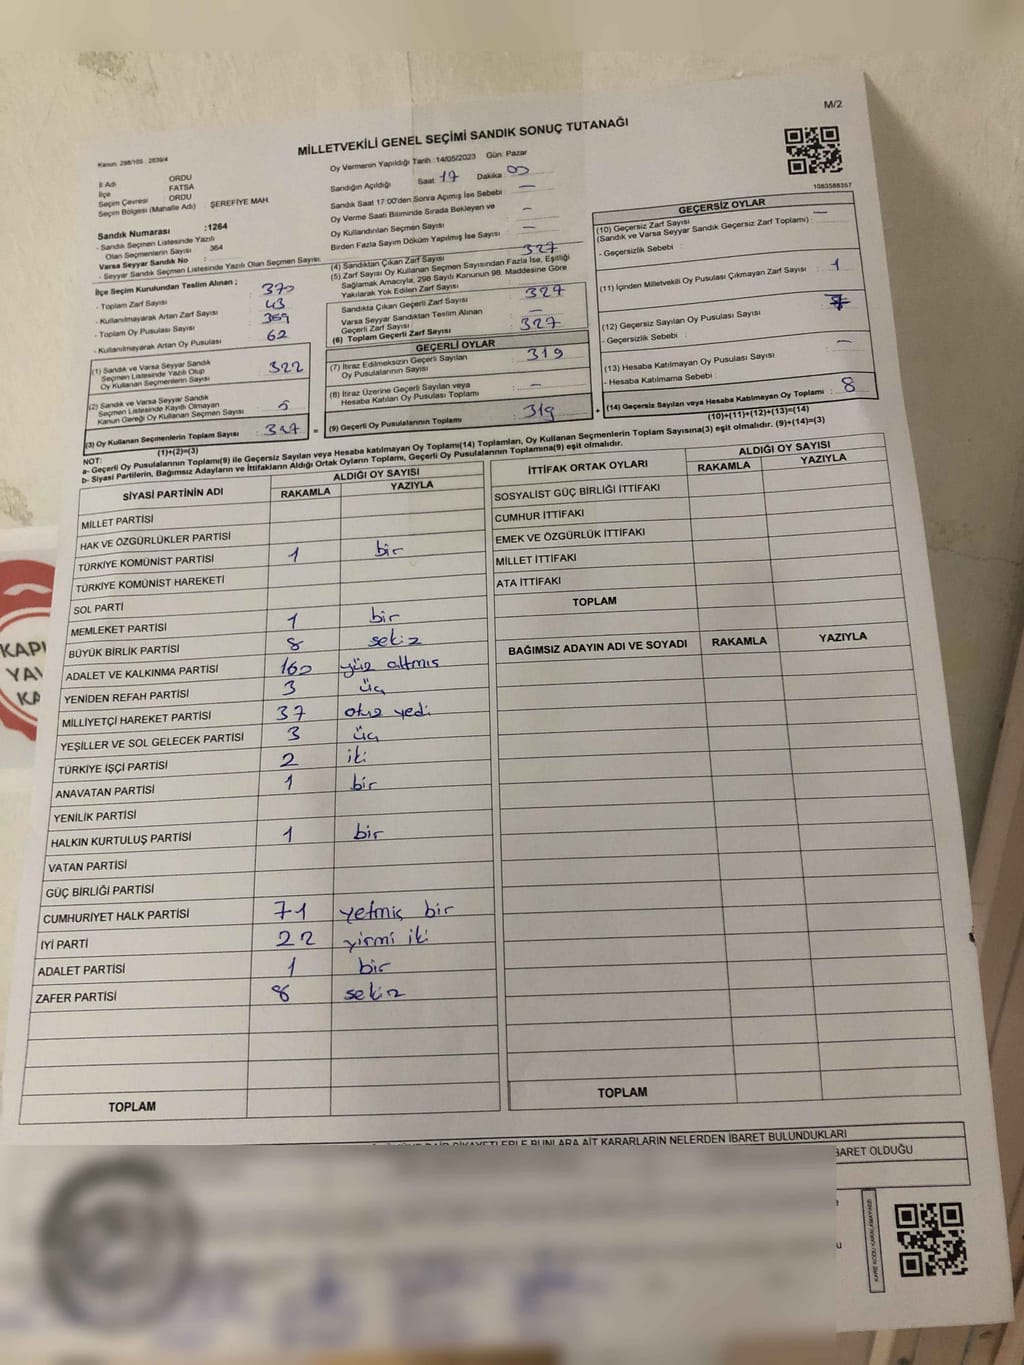 M/2
MİLLETVEKİLİ GENEL SEÇİMİ SANDIK SONUÇ TUTANAĞI
Kanun: 298/105 2839/4
İl Adı ORDU
İlçe FATSA
Seçim Çevresi ORDU
Seçim Bölgesi (Mahalle Adı) ŞEREFİYE MAH.
Sandık Numarası :1264
- Sandık Seçmen Listesinde Yazılı
Olan Seçmenlerin Sayısı : 364
Varsa Seyyar Sandık No :
- Seyyar Sandık Seçmen Listesinde Yazılı Olan Seçmen Sayısı:
Oy Vermenin Yapıldığı Tarih :14/05/2023 Gün: Pazar
Sandığın Açıldığı Saat 17 Dakika 00
Sandık Saat 17:00'den Sonra Açımış İse Sebebi : —
Oy Verme Saati Bitiminde Sırada Bekleyen ve
Oy Kullandırılan Seçmen Sayısı : -
Birden Fazla Sayım Döküm Yapılmış İse Sayısı : —
1083588357
İlçe Seçim Kurulundan Teslim Alınan ;
- Toplam Zarf Sayısı : 370
- Kullanılmayarak Artan Zarf Sayısı : 43
- Toplam Oy Pusulası Sayısı : 369
- Kullanılmayarak Artan Oy Pusulası : 62
(1) Sandık ve Varsa Seyyar Sandık
Seçmen Listesinde Yazılı Olup
Oy Kullanan Seçmenlerin Sayısı : 322
(2) Sandık ve Varsa Seyyar Sandık
Seçmen Listesinde Kayıtlı Olmayan
Kanun Gereği Oy Kullanan Seçmen Sayısı : 5
(3) Oy Kullanan Seçmenlerin Toplam Sayısı : 327
(1)+(2)=(3)
(4) Sandıktan Çıkan Zarf Sayısı : 327
(5) Zarf Sayısı Oy Kullanan Seçmen Sayısından Fazla İse, Eşitliği
Sağlamak Amacıyla, 298 Sayılı Kanunun 98. Maddesine Göre
Yakılarak Yok Edilen Zarf Sayısı : —
Sandıkta Çıkan Geçerli Zarf Sayısı : 327
Varsa Seyyar Sandıktan Teslim Alınan
Geçerli Zarf Sayısı : —
(6) Toplam Geçerli Zarf Sayısı : 327
GEÇERLİ OYLAR
(7) İtiraz Edilmeksizin Geçerli Sayılan
Oy Pusulalarının Sayısı : 319
(8) İtiraz Üzerine Geçerli Sayılan veya
Hesaba Katılan Oy Pusulası Toplamı : —
= (9) Geçerli Oy Pusulalarının Toplamı : 319 +
GEÇERSİZ OYLAR
(10) Geçersiz Zarf Sayısı
(Sandık ve Varsa Seyyar Sandık Geçersiz Zarf Toplamı) : —
- Geçersizlik Sebebi :
(11) İçinden Milletvekili Oy Pusulası Çıkmayan Zarf Sayısı : 1
(12) Geçersiz Sayılan Oy Pusulası Sayısı : 7
- Geçersizlik Sebebi :
(13) Hesaba Katılmayan Oy Pusulası Sayısı : —
- Hesaba Katılmama Sebebi :
(14) Geçersiz Sayılan veya Hesaba Katılmayan Oy Toplamı : 8
(10)+(11)+(12)+(13)=(14)
NOT:
a- Geçerli Oy Pusulalarının Toplamı(9) ile Geçersiz Sayılan veya Hesaba katılmayan Oy Toplamı(14) Toplamları, Oy Kullanan Seçmenlerin Toplam Sayısına(3) eşit olmalıdır. (9)+(14)=(3)
b- Siyasi Partilerin, Bağımsız Adayların ve İttifakların Aldığı Ortak Oyların Toplamı, Geçerli Oy Pusulalarının Toplamına(9) eşit olmalıdır.
SİYASİ PARTİNİN ADI ALDIĞI OY SAYISI
RAKAMLA YAZIYLA
MİLLET PARTİSİ
HAK VE ÖZGÜRLÜKLER PARTİSİ
TÜRKİYE KOMÜNİST PARTİSİ 1 bir
TÜRKİYE KOMÜNİST HAREKETİ
SOL PARTİ
MEMLEKET PARTİSİ 1 bir
BÜYÜK BİRLİK PARTİSİ 8 sekiz
ADALET VE KALKINMA PARTİSİ 160 yüz altmış
YENİDEN REFAH PARTİSİ 3 üç
MİLLİYETÇİ HAREKET PARTİSİ 37 otuz yedi
YEŞİLLER VE SOL GELECEK PARTİSİ 3 üç
TÜRKİYE İŞÇİ PARTİSİ 2 iki
ANAVATAN PARTİSİ 1 bir
YENİLİK PARTİSİ
HALKIN KURTULUŞ PARTİSİ 1 bir
VATAN PARTİSİ
GÜÇ BİRLİĞİ PARTİSİ
CUMHURİYET HALK PARTİSİ 71 yetmiş bir
İYİ PARTİ 22 yirmi iki
ADALET PARTİSİ 1 bir
ZAFER PARTİSİ 8 sekiz
TOPLAM
İTTİFAK ORTAK OYLARI ALDIĞI OY SAYISI
RAKAMLA YAZIYLA
SOSYALİST GÜÇ BİRLİĞİ İTTİFAKI
CUMHUR İTTİFAKI
EMEK VE ÖZGÜRLÜK İTTİFAKI
MİLLET İTTİFAKI
ATA İTTİFAKI
TOPLAM
BAĞIMSIZ ADAYIN ADI VE SOYADI RAKAMLA YAZIYLA
TOPLAM
ŞİKAYETLERLE BUNLARA AİT KARARLARIN NELERDEN İBARET BULUNDUKLARI
BARET OLDUĞU
KARE KODU KARALAMAYINIZ!
KAPI
YAV
KA